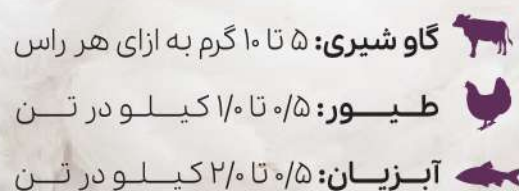 گاو شیری: ۵ تا ۱۰ گرم به ازای هر راس
طیور: ۰/۵ تا ۱/۰ کیلو در تن
آبزیان: ۰/۵ تا ۲/۰ کیلو در تن